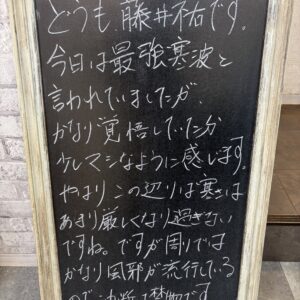 どうも、藤井祐です。
今日は最強寒波と
言われていましたが、
かなり覚悟していた分
少しマシなように感じます。
やはり、この辺りは寒さは
あまり厳しくなり過ぎない
ですね。ですが周りでは
かなり風邪が流行している
ので油断は禁物です